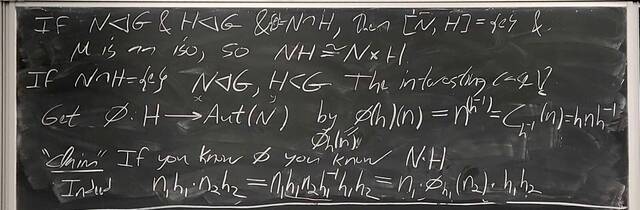 If N◁G & H◁G & {e}=N∩H, then [N,H]={e} &
μ is an iso, so NH≅N×H.
If N∩H={e} N◁G, H<G The interesting case!
Get ϕ: H→Aut(N) by ϕ(h)(n)=n^(h⁻¹)=C_{h⁻¹}(n)=hnh⁻¹
ϕ_h(n)
"claim" If you know ϕ you know N·H
Indeed n₁h₁·n₂h₂=n₁h₁n₂h₁⁻¹h₁h₂=n₁·ϕ_{h₁}(n₂)·h₁h₂